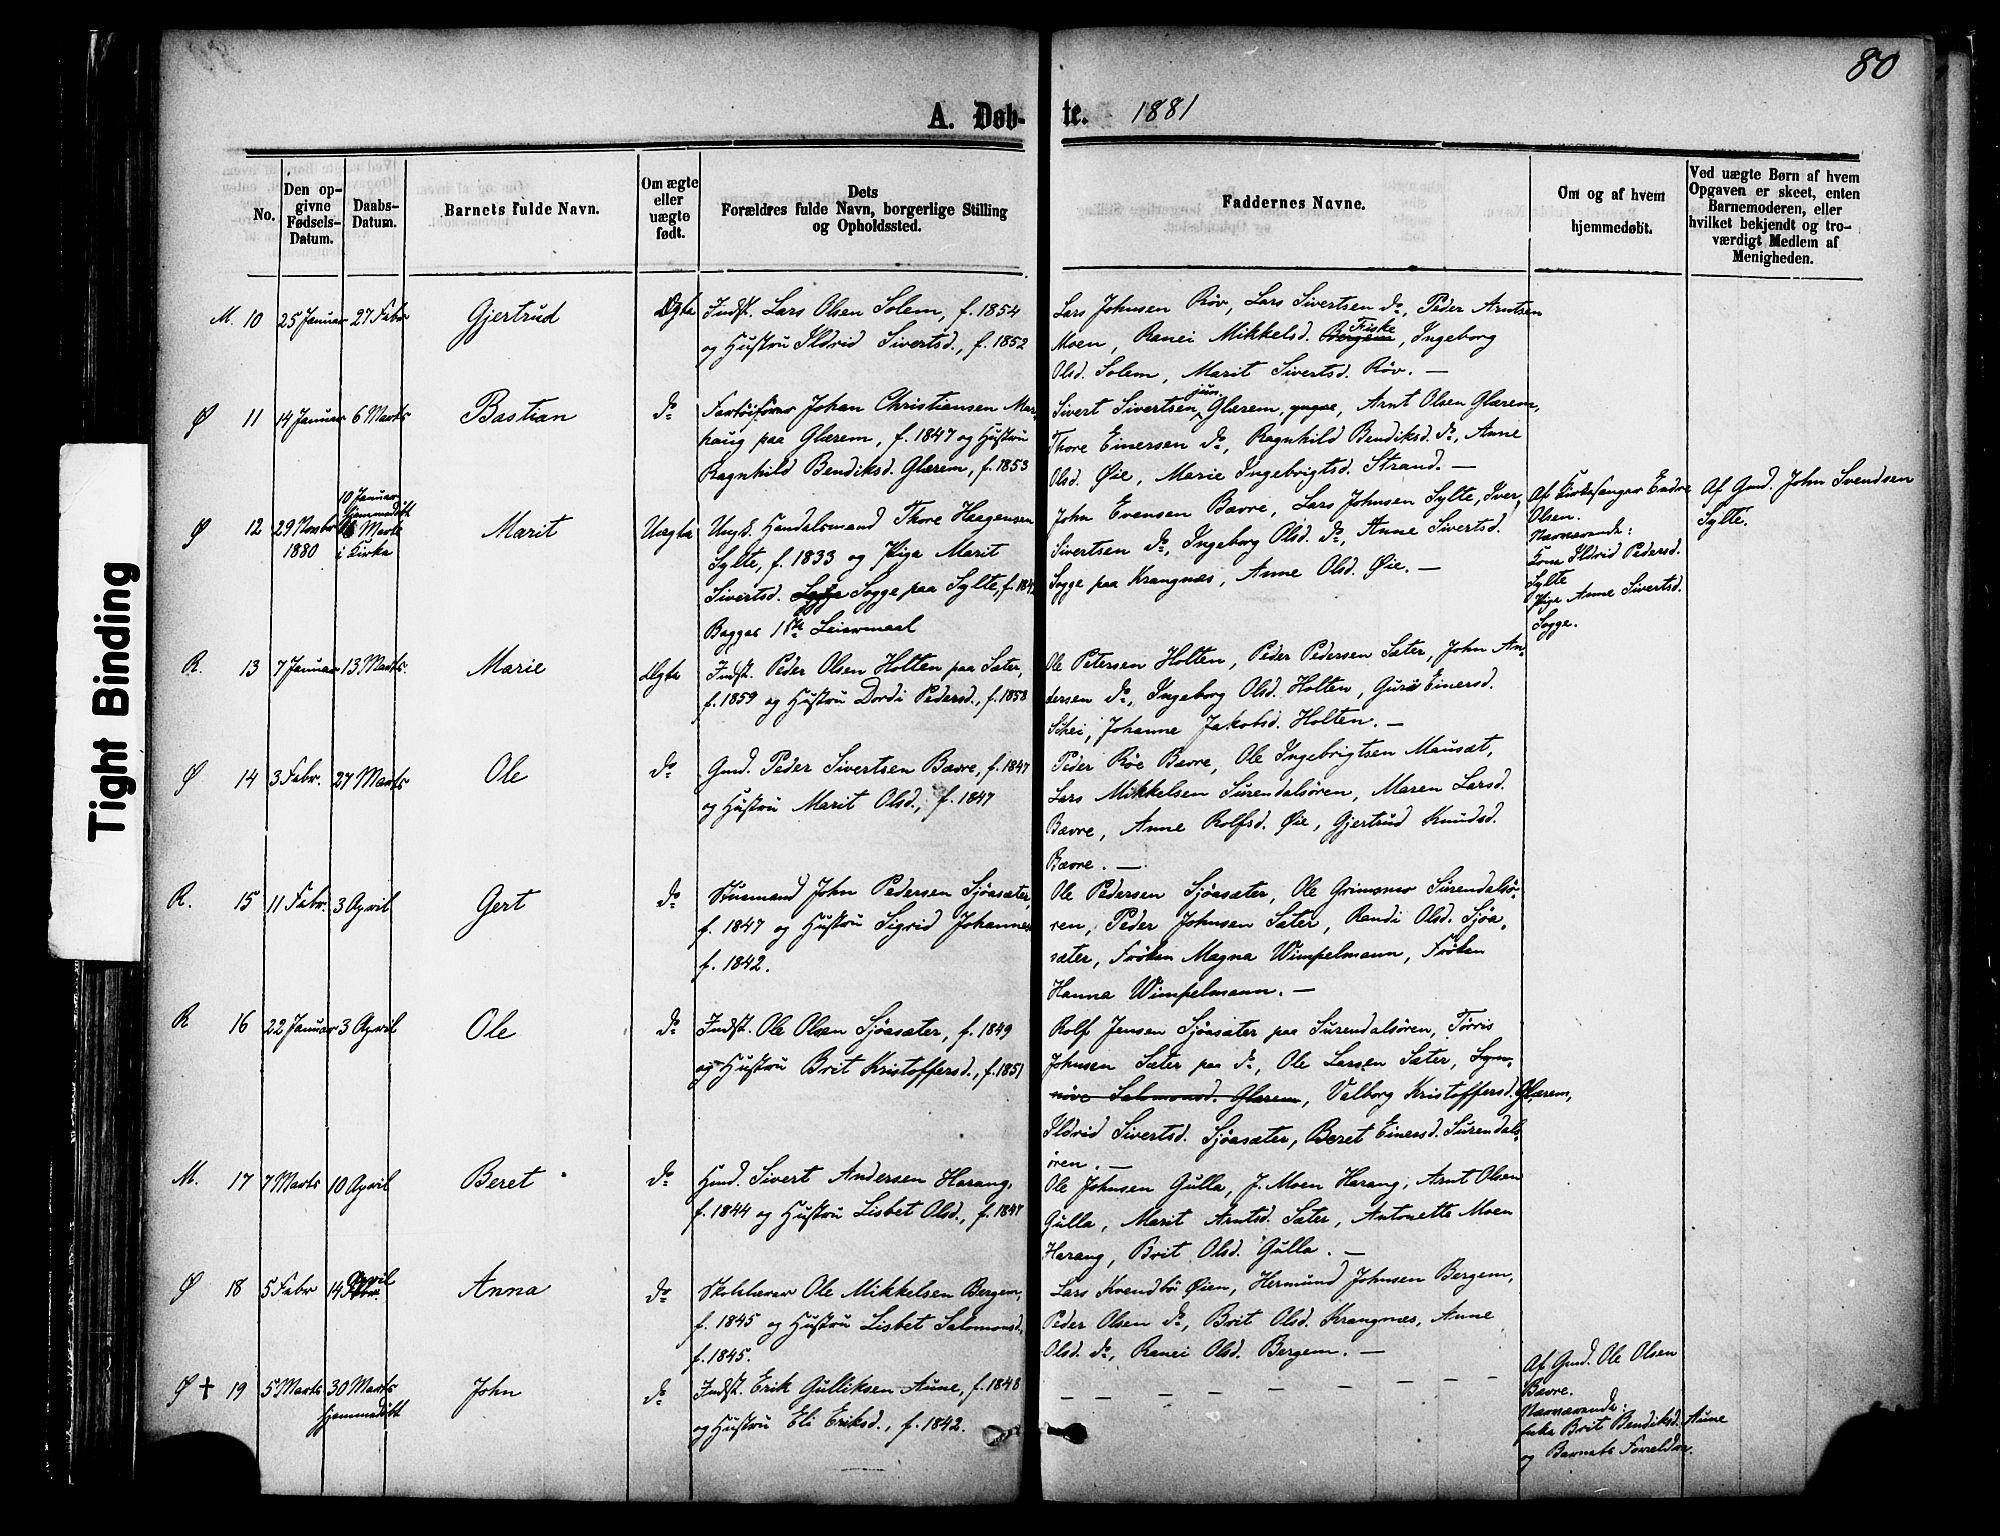 80
A. Døb-
te. 1881
No.
Den op-
givne
Fødsels-
Datum.
Daabs-
Datum.
Barnets fulde Navn.
Om ægte
eller
uægte
født.
Dets
Forældres fulde Navn, borgerlige Stilling
og Opholdssted.
Faddernes Navne.
Om og af hvem
hjemmedøbt.
Ved uægte Børn af hvem
Opgaven er skeet, enten
Barnemoderen, eller
hvilket bekjendt og tro-
værdigt Medlem af
Menigheden.
M. 10 25 Januar 27 Febr Gjertrud Ægte
Indst. Lars Olsen Solem, f. 1854
og Hustru Ildrid Sivertsd., f. 1852
Lars Johnsen Røv, Lars Sivertsen do, Peder Arntsen
Moen, Ranei Mikkelsd. Bergem Fiske, Ingeborg
Olsd. Solem, Marit Sivertsd. Røv. —
Ø 11 14 Januar 6 Marts Bastian do
Fartøifører Johan Christiansen Mar-
haug paa Glærem, f. 1847 og Hustru
Ragnhild Bendiksd. Glærem, f. 1853
Sivert Sivertsen jun. Glærem, yngre, Arnt Olsen Glærem,
Thore Einersen do, Ragnhild Bendiksd. do, Anne
Olsd. Øie, Marie Ingebrigtsd. Strand. —
Ø 12 29 Novbr 1880
10 Januar
hjemmedøbt
Marts
i Kirke
Marit Uægte
Ungk. Handelsmand Thore Haagensen
Sylte, f. 1833 og Pige Marit
Sivertsd. Sogge paa Sylte, f. 184
Begges 1ste Leiermaal
John Evensen Bævre, Lars Johnsen Sylte, Iver
Sivertsen do, Ingeborg Olsd. do, Anne Sivertsd.
Sogge paa Krangnæs, Anne Olsd. Øie. —
Af Kirkesanger Endre
Olsen.
Nærværende:
Kone Ildrid Pedersd.
Sylte
Pige Anne Sivertsd.
Sogge.
Af Gmd. John Svendsen
Sylte.
R. 13 7 Januar 13 Marts. Marie Ægte
Indst. Peder Olsen Holten paa Sæter,
f. 1859 og Hustru Dordi Pedersd., f. 1858
Ole Petersen Holten, Peder Pedersen Sæter, John An-
dersen do, Ingeborg Olsd. Holten, Guri Einersd.
Schei, Johanne Jakobsd. Holten. —
Ø 14 3 Febr. 27 Marts Ole do
Gmd. Peder Sivertsen Bævre, f. 1847
og Hustru Marit Olsd., f. 1847
Peder Røe Bævre, Ole Ingebrigtsen Mausæt,
Lars Mikkelsen Surendalsøren, Maren Larsd.
Bævre, Anne Rolfsd. Øie, Gjertrud Knudsd.
Bævre. —
R. 15 11 Febr. 3 April Gert do
Husmand John Pedersen Sjøasæter,
f. 1847 og Hustru Sigrid Johannes
f. 1842.
Ole Pedersen Sjøasæter, Ole Grimsmo Surendalsø-
ren, Peder Johnsen Sæter, Randi Olsd. Sjøa-
sæter, Frøken Magna Wimpelmann, Frøken
Hanna Wimpelmann. —
R 16 22 Januar 3 April Ole do
Indst. Ole Olsen Sjøasæter, f. 1849
og Hustru Brit Kristoffersd., f. 1851
Rolf Jensen Sjøasæter paa Surendalsøren, Tørris
Johnsen Sæter paa do, Ole Larsen Sæter, Syn-
nøve Salomonsd. Glærem, Valborg Kristoffersd. Glærem,
Ildrid Sivertsd. Sjøasæter, Beret Einersd. Surendals-
øren. —
M. 17 7 Marts 10 April Beret do
Gmd. Sivert Andersen Harang,
f. 1844 og Hustru Lisbet Olsd., f. 1847
Ole Johnsen Gulla, J. Moen Harang, Arnt Olsen
Gulla, Marit Arntsd. Sæter, Antonette Moen
Harang, Brit Olsd. Gulla. —
Ø 18 5 Febr 14 April Anna do
Skolelærer Ole Mikkelsen Bergem,
f. 1845 og Hustru Lisbet Salomonsd.
f. 1845.
Lars Kvendbø Øien, Hermund Johnsen Bergem,
Peder Olsen do, Brit Olsd. Krangnæs, Anne
Olsd. do, Ranei Olsd. Bergem. —
Ø † 19 5 Marts 30 Marts
hjemmedøbt
John do
Indst. Erik Gulliksen Aune, f. 1848
og Hustru Eli Eriksd., f. 1842.
— — — — — — — — — —
Af Gmd. Ole Olsen
Bævre.
Nærværende:
Enke Brit Bendiksd. Aune
og Barnets Forældre.
Tight Binding